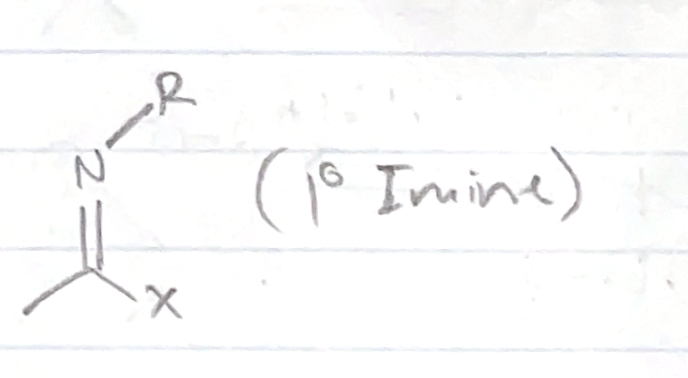 R
N
(1° Imine)
X